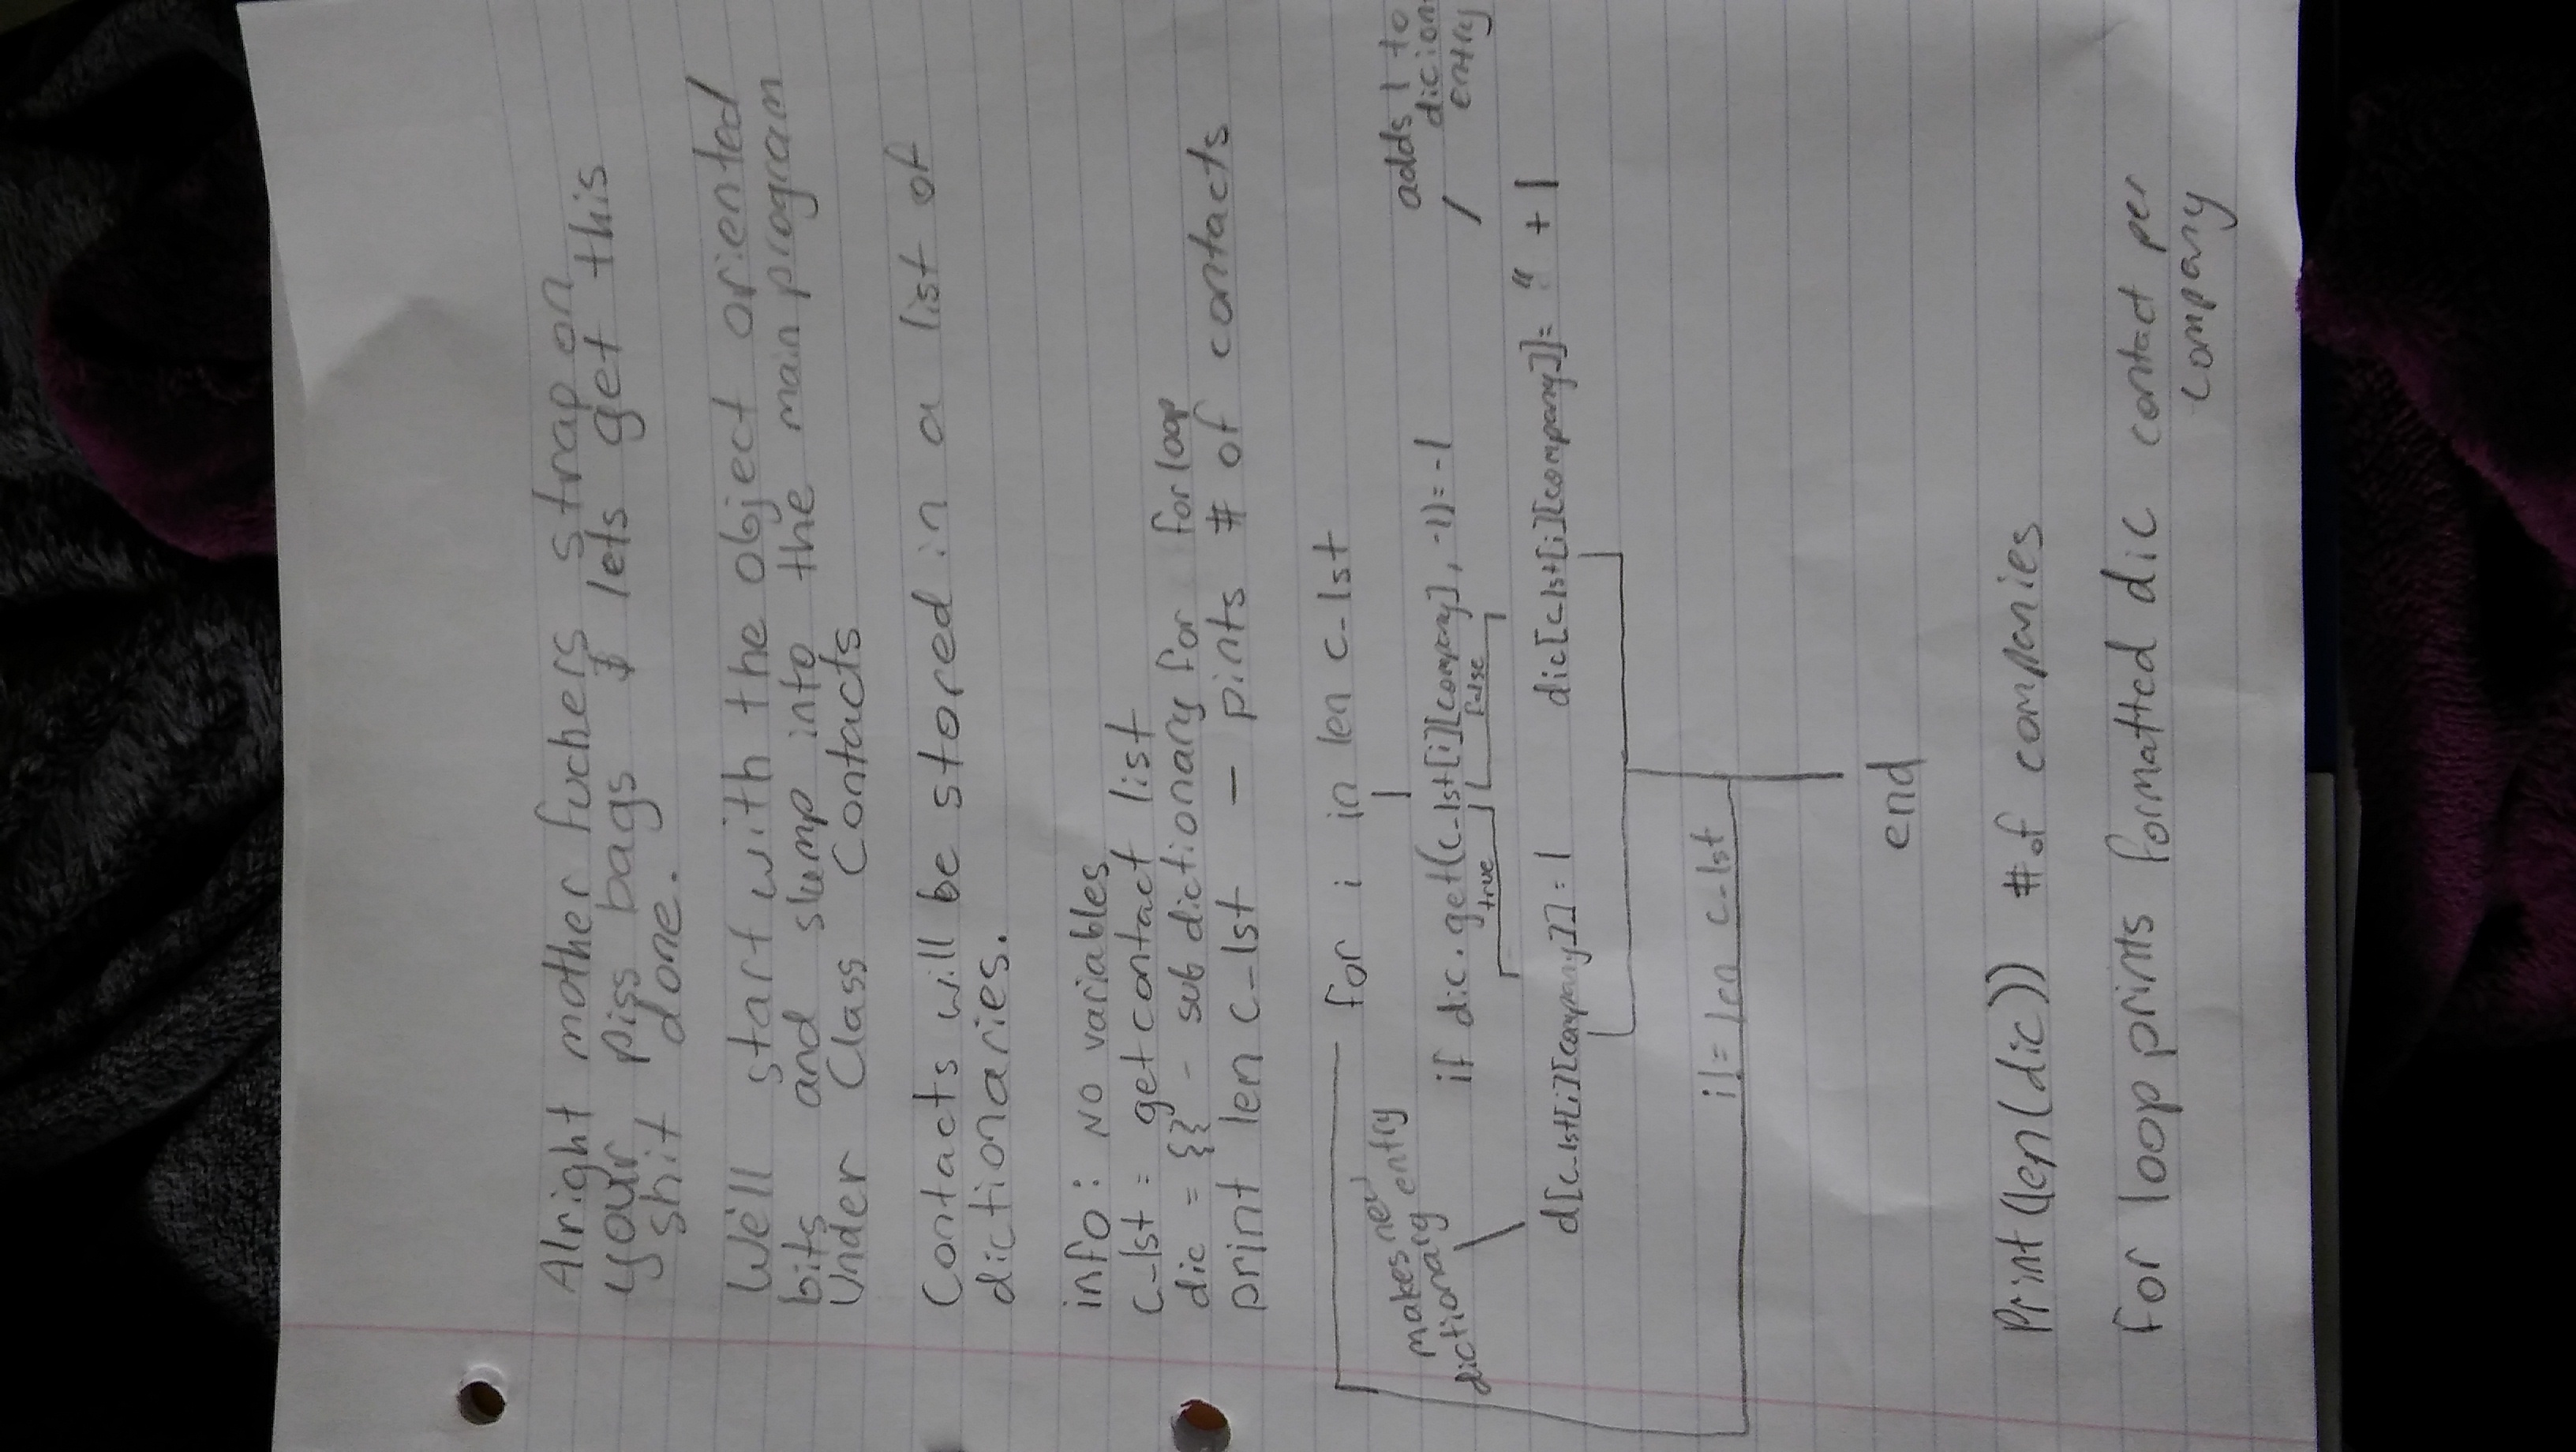 Alright mother fuckers strap on
your piss bags & lets get this
shit done.
We'll start with the object oriented
bits and slump into the main program
Under Class Contacts
Contacts will be stored in a list of
dictionaries.
info: NO variables
c-lst = get contact list
dic = {} - sub dictionary for for loop
print len c-lst — pints # of contacts
for i in len c-lst
makes new
dictionary entry
if dic.get(c-lst[i][company], -1)=-1
adds 1 to
dicion
entry
true false
d[c-lst[i][company]]=1 dic[c-lst[i][company]]= " + 1
i!= len c-lst
end
Print(len(dic)) # of companies
For loop prints formatted dic contact per
company